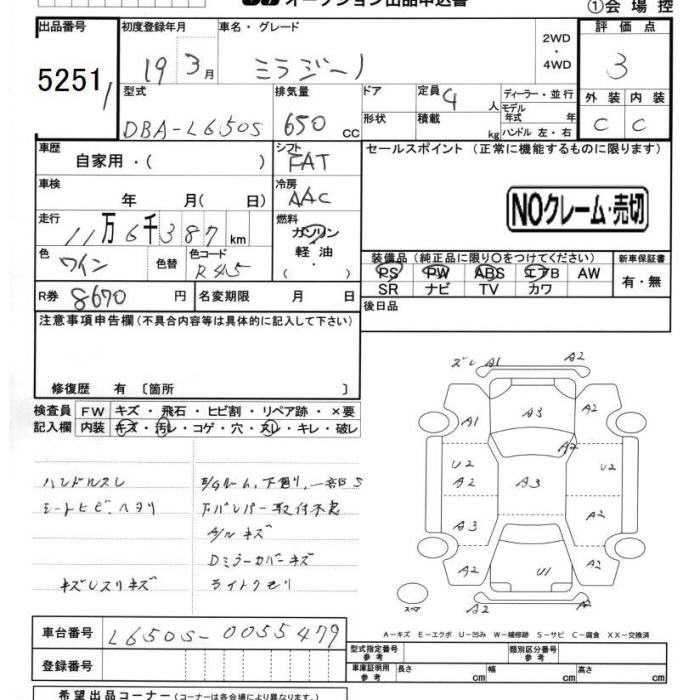 オークション出品申込書
①会場控
出品番号
5251
初度登録年月
19 3月
車名・グレード
ミラジーノ
2WD
・
4WD
評価点
3
外装 内装
C C
型式
DBA-L650S
排気量
650 cc
ドア
形状
定員 4 人
積載 kg
ディーラー・並行
モデル年式 年
ハンドル 左・右
車歴
自家用・( )
シフト
FAT
セールスポイント (正常に機能するものに限ります)
NOクレーム・売切
車検
年 月( 日)
冷房
AAC
走行
11万6千387km
燃料
ガソリン
軽油
( ・ )
色
ワイン
色替
色コード
R45
装備品 (純正品に限り○をつけてください)
PS PW ABS エアB AW
SR ナビ TV カワ
新車保証書
有・無
R券 8670 円
名変期限 月 日
後日品
注意事項申告欄 (不具合内容等は具体的に記入して下さい)
修復歴 有 〔箇所 〕
検査員記入欄
FW キズ・飛石・ヒビ割・リペア跡・×要
内装 キズ・汚レ・コゲ・穴・スレ・キレ・破レ
ハンドルスレ
シートヒビ、ヘタリ
キズレスリキズ
下廻り、一部S
Fバンパー取付不良
A/Wキズ
Dミラーカバーキズ
ライトクモリ
ズレ A1 A2
A1 A3 A2
A2
U2 A2 A3 U2
A3 A2
A2 U1 A2
A2 A2
スペア
A-キズ E-エクボ U-凹み W-補修跡 S-サビ C-腐食 XX-交換済
車台番号 L650S-0055479
登録番号
型式指定番号 参考
類別区分番号 参考
車庫証明用 参考
長さ cm
幅 cm
高さ cm
希望出品コーナー (コーナーは各会場により異なります。)